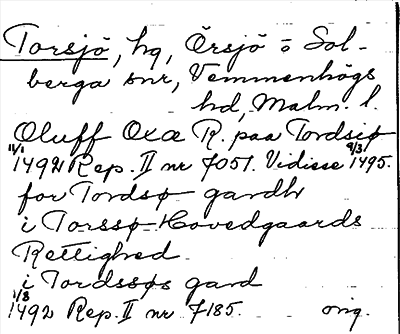 Torsjö, hg, Örsjö o Sol-
berga snr, Vemmenhögs
hd, Malm. l.
Oluff Oxæ R. paa Tordsiø
11/1 1492 Rep. II nr 7051. Vidisse 9/3 1495.
for Tordsø gardh
i Torssø Hovedgaards
Rettighed
i Tordssøs gard
1/8 1492 Rep. II nr 7185. orig.